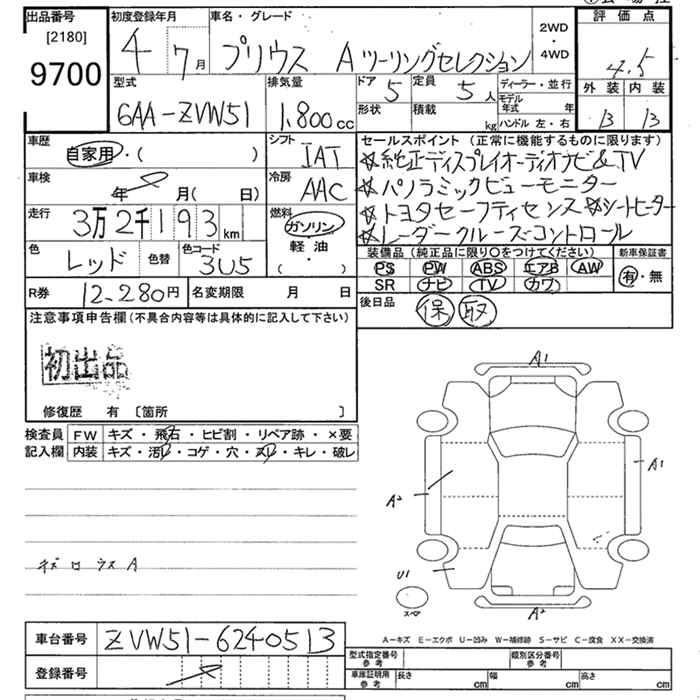 出品番号
[2180]
9700
初度登録年月
4 7月
車名・グレード
プリウス A ツーリングセレクション
2WD
・
4WD
評価点
4.5
型式
6AA-ZVW51
排気量
1,800cc
ドア 5
定員 5人
形状
積載 kg
ディーラー・並行
モデル年式 年
ハンドル 左・右
外装 内装
B B
車歴
自家用・( )
シフト
IAT
車検
年 月( 日)
冷房
AAC
走行
3万2千193km
燃料
ガソリン
軽・油
( ・ )
色
レッド
色替
色コード
3U5
セールスポイント (正常に機能するものに限ります)
☆純正ディスプレイオーディオナビ&TV
☆パノラミックビューモニター
☆トヨタセーフティセンス ☆シートヒーター
☆レーダークルーズコントロール
装備品 (純正品に限り○をつけてください)
新車保証書
PS PW ABS エアB AW
SR ナビ TV カワ
有・無
R券 12,280円
名変期限 月 日
後日品 保 取
注意事項申告欄 (不具合内容等は具体的に記入して下さい)
初出品
修復歴 有 〔箇所 〕
検査員
記入欄
FW キズ・飛石・ヒビ割・リペア跡・×要
内装 キズ・汚レ・コゲ・穴・スレ・キレ・破レ
A1
A1
A2
U1
スペア
A2
A-キズ E-エクボ U-凹み W-補修跡 S-サビ C-腐食 XX-交換済
車台番号 ZVW51-6240513
登録番号
型式指定番号
参考
類別区分番号
参考
車庫証明用
参考
長さ cm 幅 cm 高さ cm